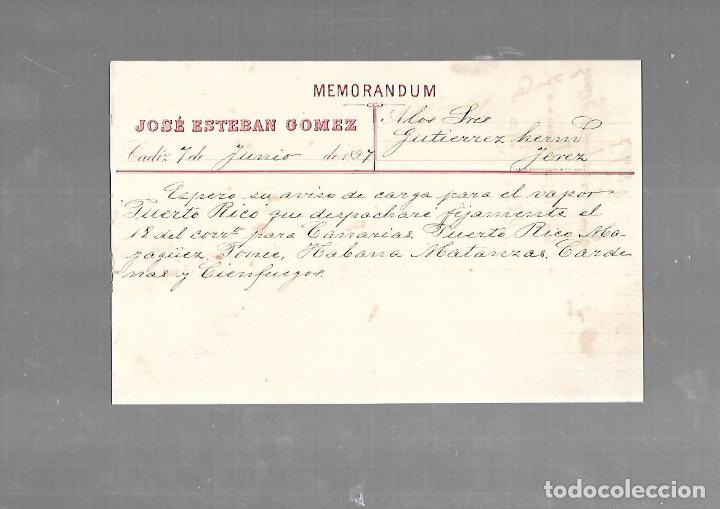 MEMORANDUM
JOSÉ ESTEBAN GOMEZ
Cadiz 7 de Junio de 1897
A los Sres
Gutierrez herm
Jerez
Espero su aviso de carga para el vapor
Puerto Rico que despacharé fijamente el
18 del corrte para Canarias, Puerto Rico, Ma-
yagüez, Ponce, Habana Matanzas, Carde
nas y Cienfuegos.
todocoleccion.net